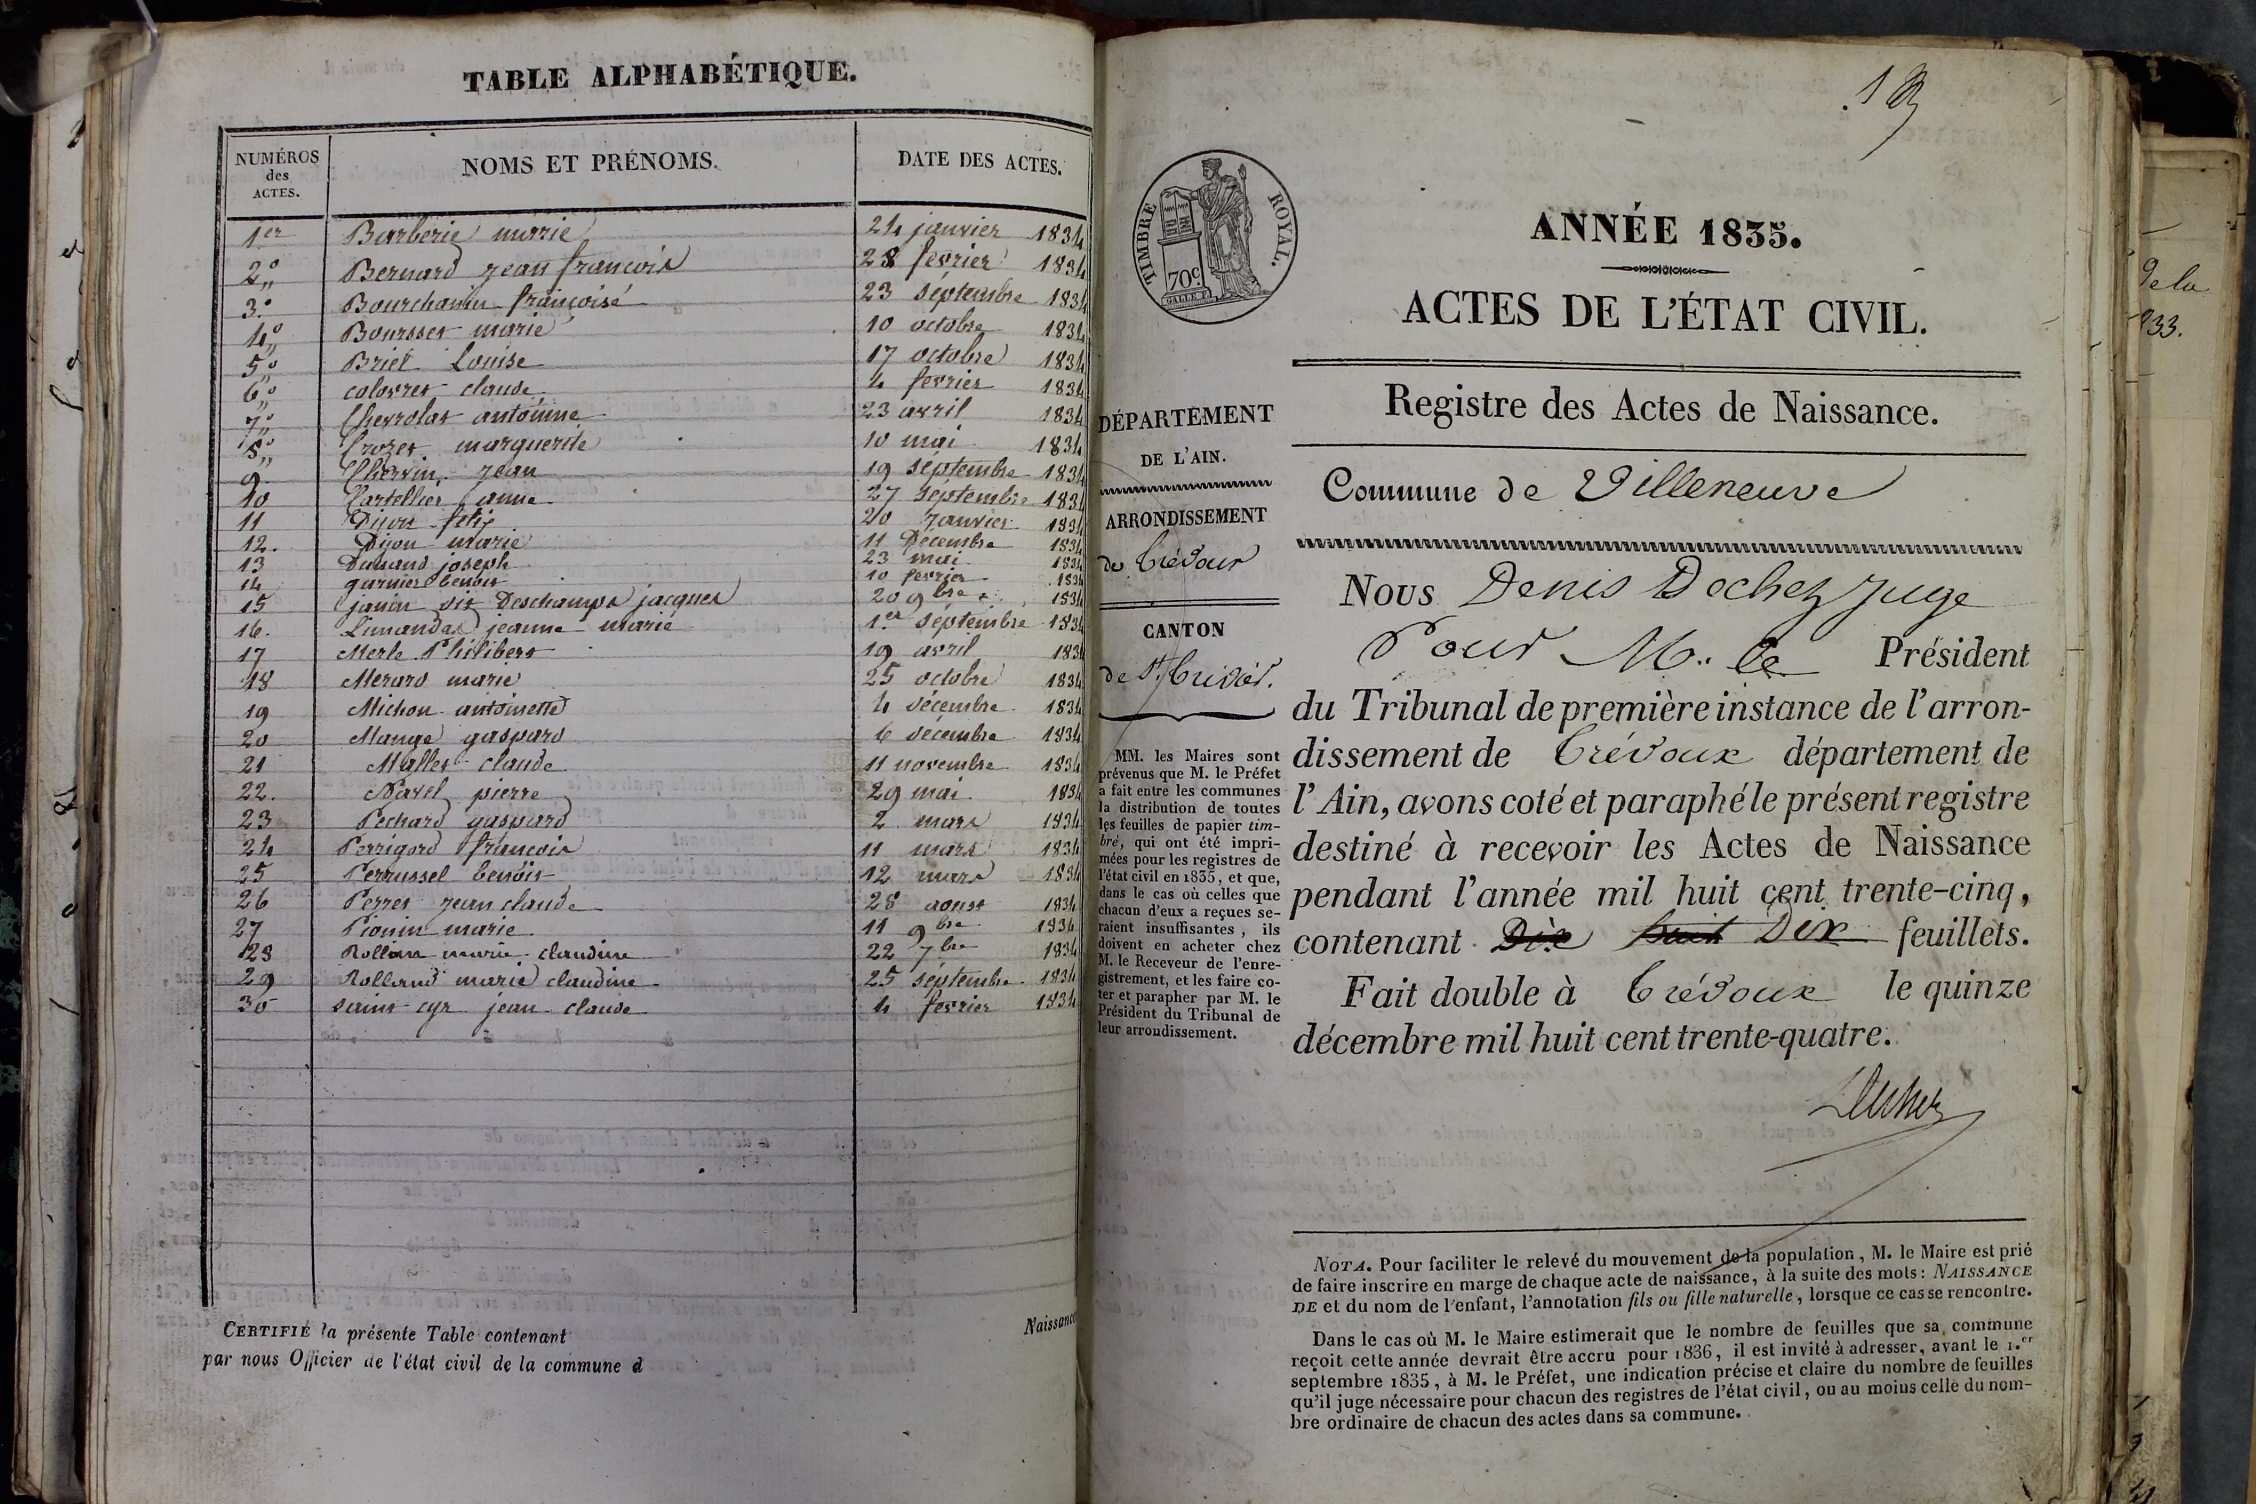 TABLE ALPHABÉTIQUE.
NUMÉROS des ACTES. NOMS ET PRÉNOMS. DATE DES ACTES.
1er Barberie marie 24 janvier 1834
2° Bernard jean françois 28 fevrier 1834
3° Bourchanin françoise 23 septembre 1834
4° Boursset marie 10 octobre 1834
5° Briel Louise 17 octobre 1834
6° colovret claude 4 fevrier 1834
7° Chevrolat antoinine 23 avril 1834
8° Crozet marguerite 10 mai 1834
9 Chervin jean 19 septembre 1834
10 Cartellier anne 27 septembre 1834
11 Dijon felix 20 janvier 1834
12. Dijon marie 11 Décembre 1834
13 Durand joseph 23 mai 1834
14 garnier benoit 10 fevrier 1834
15 janin dit Deschamps jacques 20 9bre 1834
16. Limandas jeanne marie 1er septembre 1834
17 Merle Philibert 19 avril 1834
18 Merard marie 25 octobre 1834
19 Michon antoinette 4 décembre 1834
20 Mange gaspard 6 décembre 1834
21 Mallet claude 11 novembre 1834
22. Navel pierre 29 mai 1834
23 Pechard gaspard 2 mars 1834
24 Perrigord françois 11 mars 1834
25 Perrussel benoit 12 mars 1834
26 Perret jean claude 28 aoust 1834
27 Pionin marie 11 9bre 1834
28 Rollin marie claudine 22 7bre 1834
29 Rolland marie claudine 25 septembre 1834
30 saint cyr jean claude 4 fevrier 1834
CERTIFIÉ la présente Table contenant Naissance
par nous Officier de l'état civil de la commune d
TIMBRE ROYAL.
70c
ANNÉE 1835.
ACTES DE L'ÉTAT CIVIL.
Registre des Actes de Naissance.
DÉPARTEMENT
DE L'AIN.
ARRONDISSEMENT
de Trévoux
CANTON
de St Trivier.
MM. les Maires sont
prévenus que M. le Préfet
a fait entre les communes
la distribution de toutes
les feuilles de papier tim-
bré, qui ont été impri-
mées pour les registres de
l'état civil en 1835, et que,
dans le cas où celles que
chacun d'eux a reçues se-
raient insuffisantes, ils
doivent en acheter chez
M. le Receveur de l'enre-
gistrement, et les faire co-
ter et parapher par M. le
Président du Tribunal de
leur arrondissement.
Commune de Villeneuve
Nous Denis Dechez juge
Pour M. le Président
du Tribunal de première instance de l'arron-
dissement de Trévoux département de
l'Ain, avons coté et paraphé le présent registre
destiné à recevoir les Actes de Naissance
pendant l'année mil huit cent trente-cinq,
contenant Dix huit Dix feuillets.
Fait double à Trévoux le quinze
décembre mil huit cent trente-quatre.
Dechez
NOTA. Pour faciliter le relevé du mouvement de la population, M. le Maire est prié
de faire inscrire en marge de chaque acte de naissance, à la suite des mots: NAISSANCE
DE et du nom de l'enfant, l'annotation fils ou fille naturelle, lorsque ce cas se rencontre.
Dans le cas où M. le Maire estimerait que le nombre de feuilles que sa commune
reçoit cette année devrait être accru pour 1836, il est invité à adresser, avant le 1.er
septembre 1835, à M. le Préfet, une indication précise et claire du nombre de feuilles
qu'il juge nécessaire pour chacun des registres de l'état civil, ou au moins celle du nom-
bre ordinaire de chacun des actes dans sa commune.
de la
833.